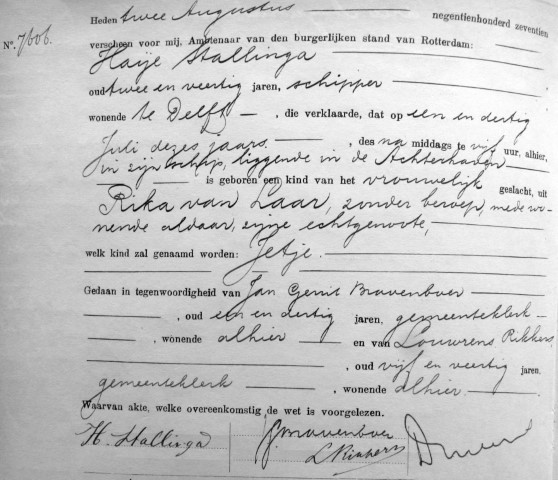 Heden twee Augustus negentienhonderd zeventien
No. 7606. verscheen voor mij, Ambtenaar van den burgerlijken stand van Rotterdam:
Haije Stallinga
oud twee en veertig jaren, schipper
wonende te Delft —, die verklaarde, dat op een en dertig
Juli dezes jaars. —, des na middags te vijf uur, alhier,
in zijn schip, liggende in de Achterhaven
— is geboren een kind van het vrouwelijk geslacht, uit
Rika van Laar, zonder beroep, mede wo-
nende aldaar, zijne echtgenoote,
welk kind zal genaamd worden: Jetje.
Gedaan in tegenwoordigheid van Jan Gerrit Bravenboer
—, oud een en dertig jaren, gemeenteklerk —
—, wonende alhier — en van Louwrens Rikkers,
—, oud vijf en veertig jaren,
gemeenteklerk —, wonende alhier. —
Waarvan akte, welke overeenkomstig de wet is voorgelezen.
H. Stallinga JBravenboer
L Rikkers